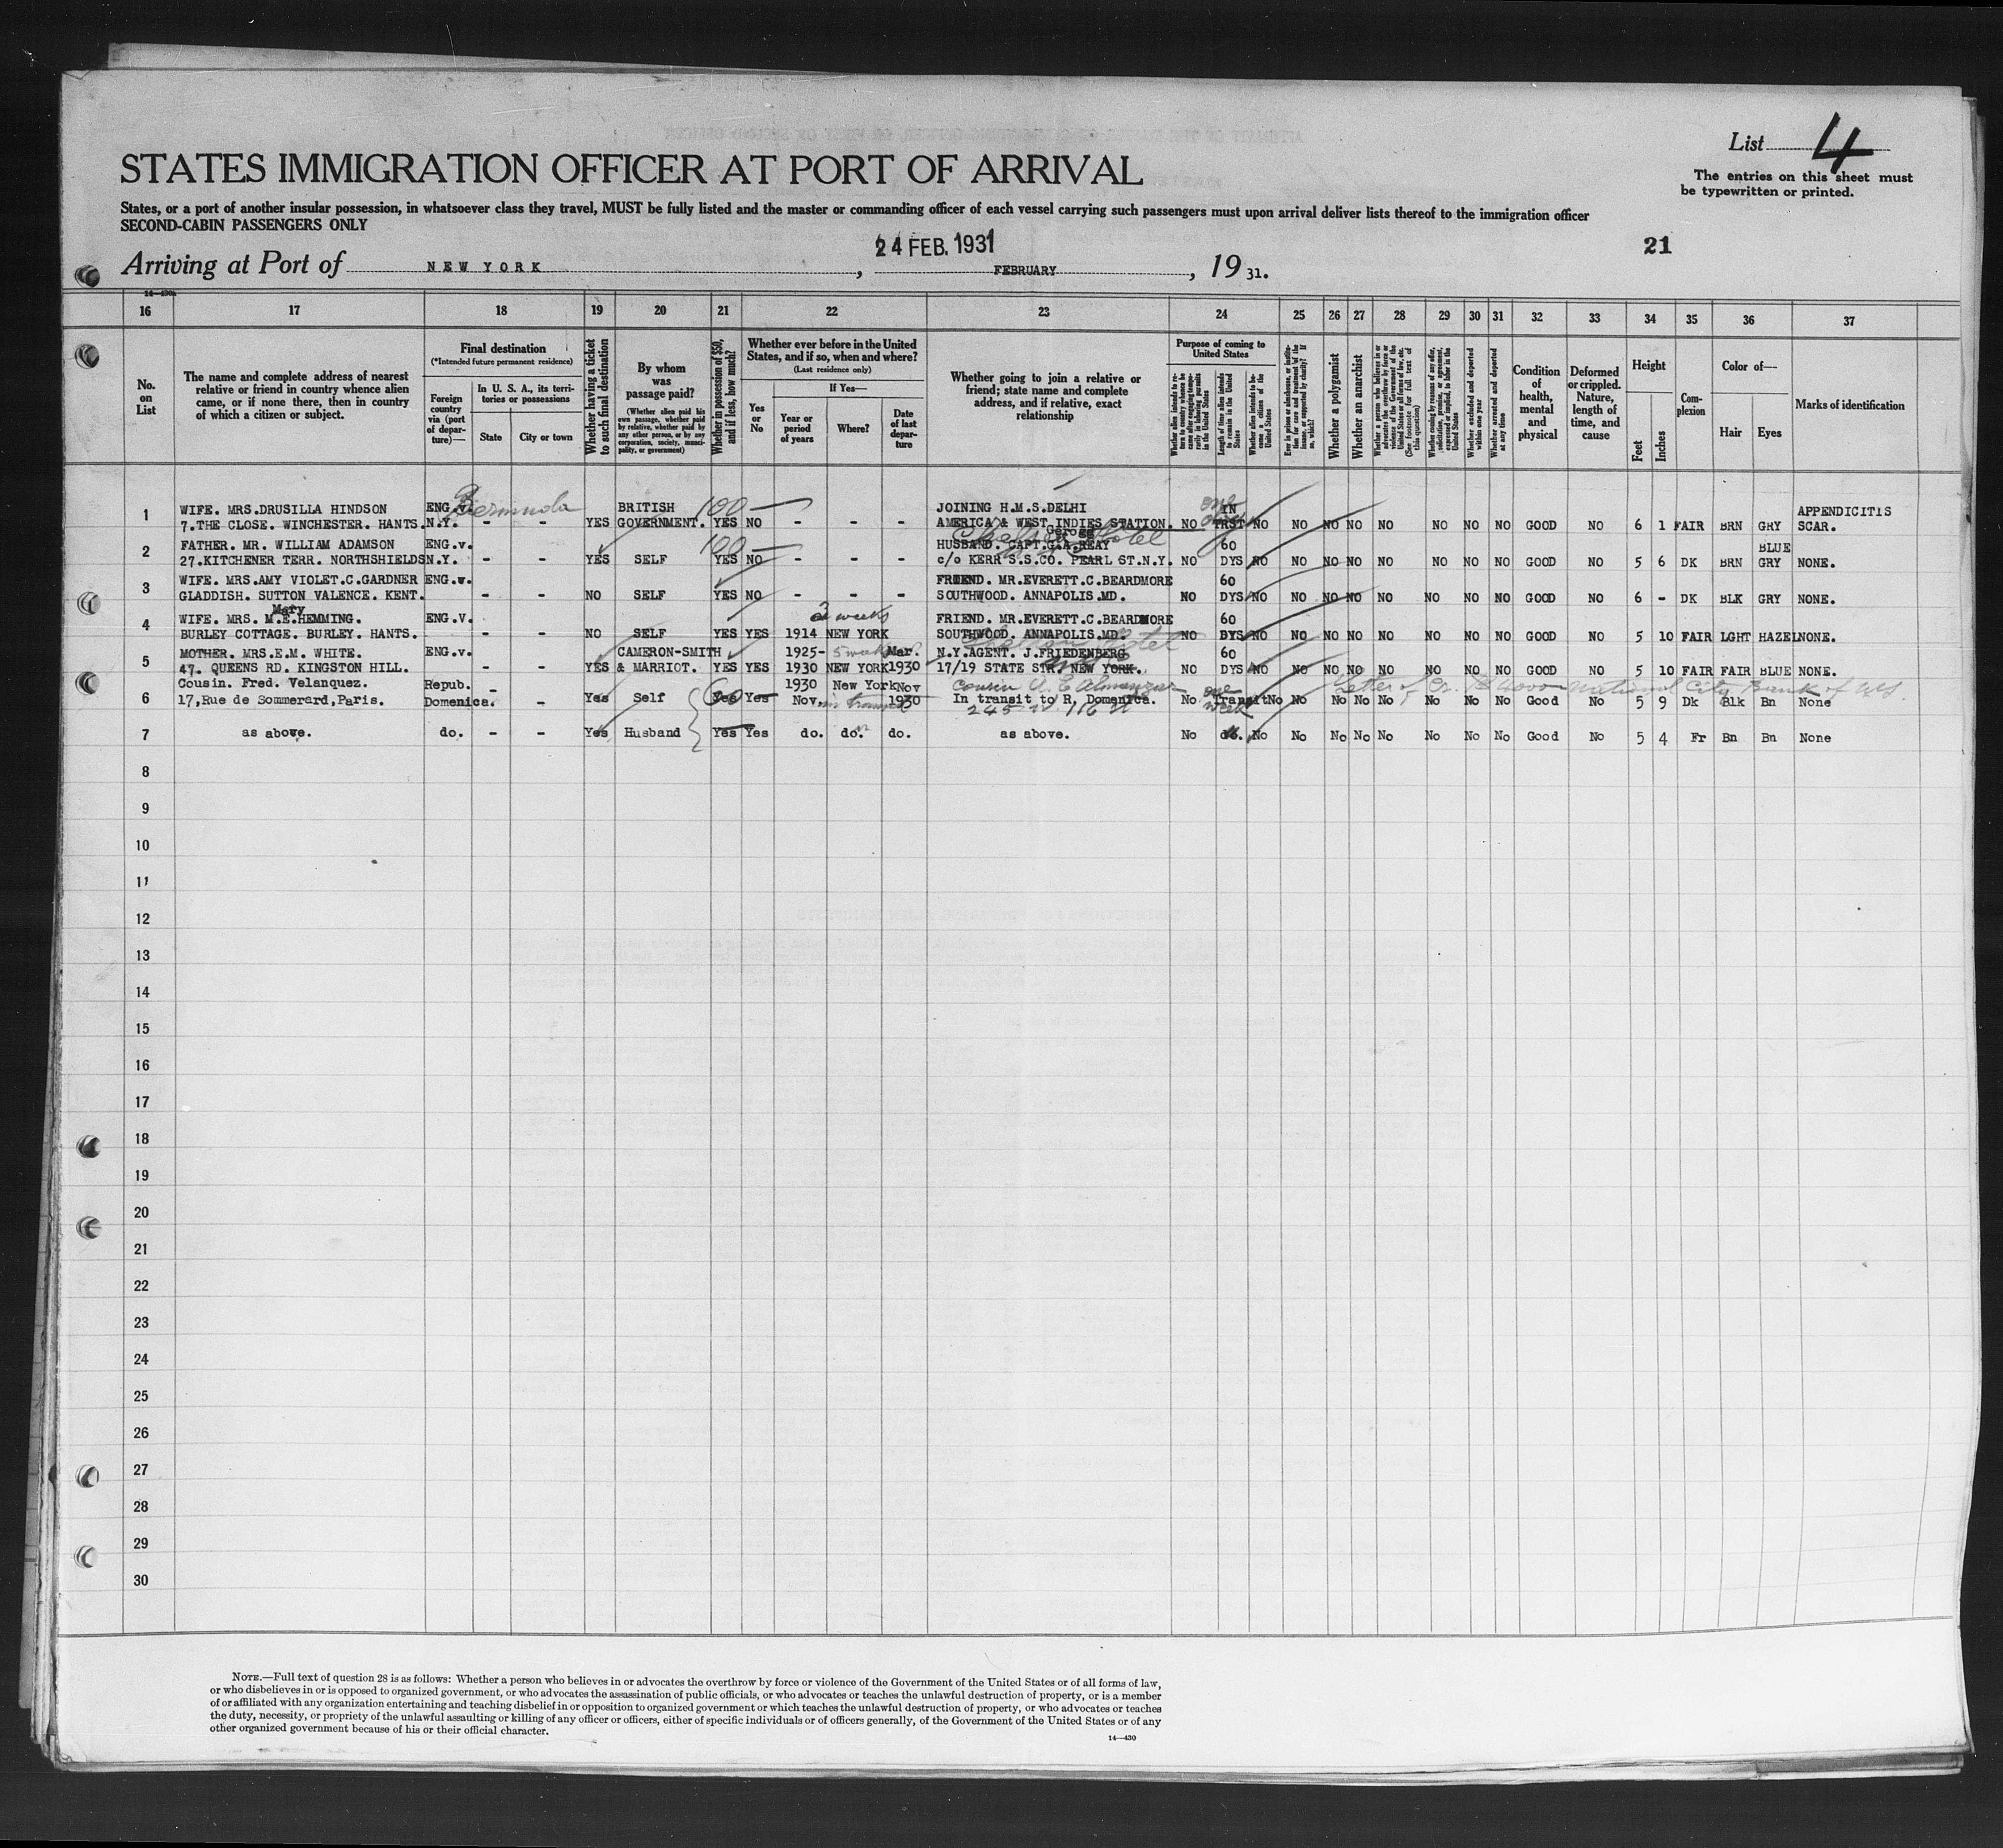 List 4
The entries on this sheet must
be typewritten or printed.
STATES IMMIGRATION OFFICER AT PORT OF ARRIVAL
States, or a port of another insular possession, in whatsoever class they travel, MUST be fully listed and the master or commanding officer of each vessel carrying such passengers must upon arrival deliver lists thereof to the immigration officer
SECOND-CABIN PASSENGERS ONLY
24 FEB. 1931
21
Arriving at Port of NEW YORK, FEBRUARY, 19 31.
16 17 18 19 20 21 22 23 24 25 26 27 28 29 30 31 32 33 34 35 36 37
No. on List
The name and complete address of nearest relative or friend in country whence alien came, or if none there, then in country of which a citizen or subject.
Final destination
(*Intended future permanent residence)
Foreign country via (port of departure)—
In U. S. A., its territories or possessions
State
City or town
Whether having a ticket to such final destination
By whom was passage paid?
(Whether alien paid his own passage, whether paid by relative, whether paid by any other person, or by any corporation, society, municipality, or government)
Whether in possession of $50, and if less, how much?
Whether ever before in the United States, and if so, when and where?
(Last residence only)
Yes or No
If Yes—
Year or period of years
Where?
Date of last departure
Whether going to join a relative or friend; state name and complete address, and if relative, exact relationship
Purpose of coming to United States
Length of time alien intends to remain in the United States
Whether a polygamist
Whether an anarchist
Whether excluded and deported within one year
Whether arrested and deported at any time
Condition of health, mental and physical
Deformed or crippled. Nature, length of time, and cause
Height
Feet
Inches
Complexion
Color of—
Hair
Eyes
Marks of identification
1 WIFE. MRS.DRUSILLA HINDSON ENG.v. Bermuda BRITISH 100 — JOINING H.M.S.DELHI IN APPENDICITIS
7.THE CLOSE. WINCHESTER. HANTS. N.Y. - - YES GOVERNMENT. YES NO - - - AMERICA & WEST INDIES STATION. NO TRST NO NO NO NO NO NO NO NO GOOD NO 6 1 FAIR BRN GRY SCAR.
2 FATHER. MR. WILLIAM ADAMSON ENG.v. 100 — HUSBAND. CAPT.G.A.REAY 60 BLUE
27.KITCHENER TERR. NORTHSHIELDS N.Y. - - YES SELF YES NO - - - c/o KERR S.S.CO. PEARL ST.N.Y. NO DYS NO NO NO NO NO NO NO NO GOOD NO 5 6 DK BRN GRY NONE.
3 WIFE. MRS.AMY VIOLET.C.GARDNER ENG.v. FRIEND. MR.EVERETT.C.BEARDMORE 60
GLADDISH. SUTTON VALENCE. KENT. - - NO SELF YES NO - - - SOUTHWOOD. ANNAPOLIS.MD. NO DYS NO NO NO NO NO NO NO NO GOOD NO 6 - DK BLK GRY NONE.
Mary
4 WIFE. MRS. M.E.HEMMING. ENG.V. 3 weeks FRIEND. MR.EVERETT.C.BEARDMORE 60
BURLEY COTTAGE. BURLEY. HANTS. - - NO SELF YES YES 1914 NEW YORK SOUTHWOOD. ANNAPOLIS.MD. NO DYS NO NO NO NO NO NO NO NO GOOD NO 5 10 FAIR LGHT HAZEL NONE.
5 MOTHER. MRS.E.M. WHITE. ENG.v. CAMERON-SMITH 1925- 5 weeks Mar. N.Y.AGENT. J.FRIEDENBERG 60
47. QUEENS RD. KINGSTON HILL. - - YES & MARRIOT. YES YES 1930 NEW YORK 1930 17/19 STATE STR. NEW YORK. NO DYS NO NO NO NO NO NO NO NO GOOD NO 5 10 FAIR FAIR BLUE NONE.
6 Cousin. Fred. Velanquez. Repub. 1930 New York Nov Cousin one Letter of Cr. National City Bank of
17,Rue de Sommerard,Paris. Domenica. - - Yes Self Yes Yes Nov. in transit 1930 In transit to R, Domenica. No Transit No No No No No No No No Good No 5 9 Dk Blk Bn None
245 W 116 St week
7 as above. do. - - Yes Husband Yes Yes do. do. do. as above. No do. No No No No No No No No Good No 5 4 Fr Bn Bn None
8
9
10
11
12
13
14
15
16
17
18
19
20
21
22
23
24
25
26
27
28
29
30
NOTE.—Full text of question 28 is as follows: Whether a person who believes in or advocates the overthrow by force or violence of the Government of the United States or of all forms of law,
or who disbelieves in or is opposed to organized government, or who advocates the assassination of public officials, or who advocates or teaches the unlawful destruction of property, or is a member
of or affiliated with any organization entertaining and teaching disbelief in or opposition to organized government or which teaches the unlawful destruction of property, or who advocates or teaches
the duty, necessity, or propriety of the unlawful assaulting or killing of any officer or officers, either of specific individuals or of officers generally, of the Government of the United States or of any
other organized government because of his or their official character.
14—430